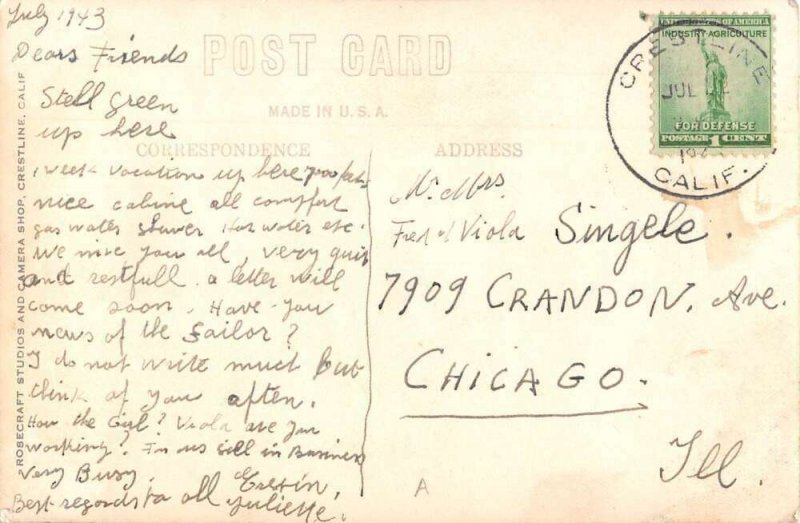 July 1943
Dears Friends
POST CARD
Stell Green
up here
MADE IN U.S.A.
CORRESPONDENCE
ADDRESS
1 week vacation up here 7000
nice cabine all comffort
gas water shower Hot water etc.
We mise you all, very quit
and restfull. a letter will
come soon. Have you
news of the Sailor?
I do not write much But
think of you aften.
How the Girl? Viola are you
working? For us sell in Business
Very Busy.
Best regards to all
Juliette.
Mr Mrs.
Fred & Viola Singele.
7909 CRANDON. Ave.
CHICAGO.
Ill.
A
ROSECRAFT STUDIOS AND CAMERA SHOP, CRESTLINE, CALIF
CRESTLINE
JUL
194
CALIF.
UNITED STATES OF AMERICA
INDUSTRY-AGRICULTURE
FOR DEFENSE
POSTAGE 1 CENT